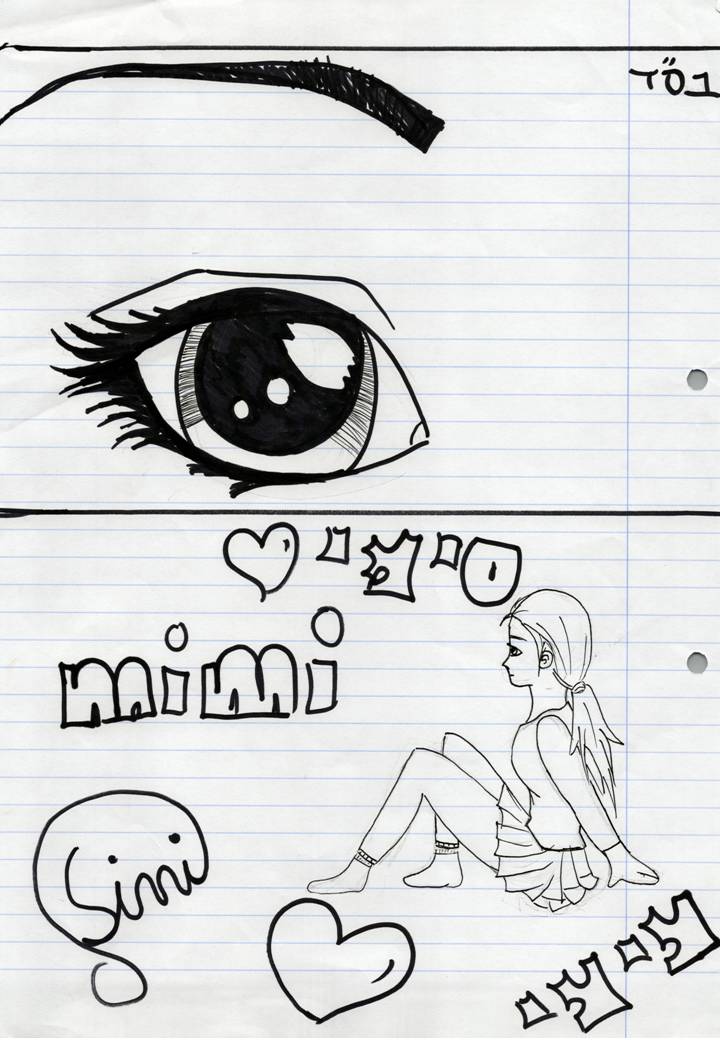 בס"ד
סימי
mimi
Simi
מימי